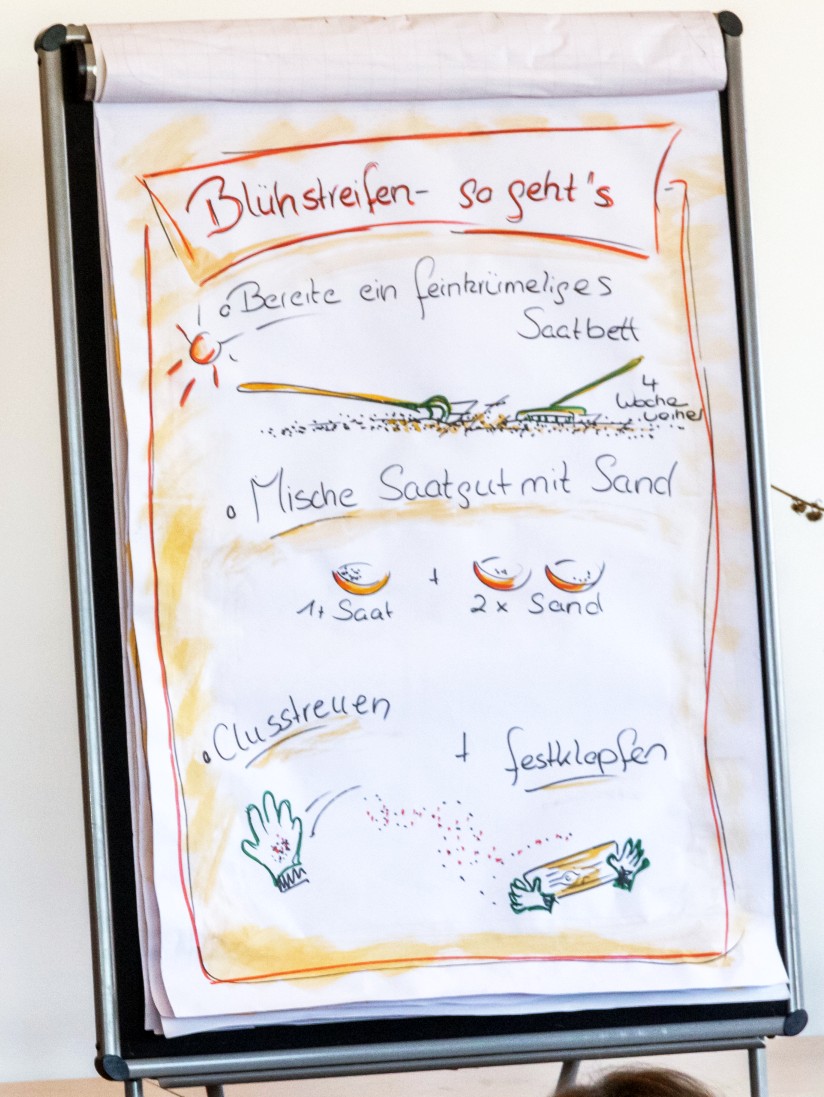 Blühstreifen- so geht's
• Bereite ein feinkrümeliges
Saatbett
4
Woche
vorher
• Mische Saatgut mit Sand
+
1x Saat 2x Sand
• Ausstreuen + festklopfen